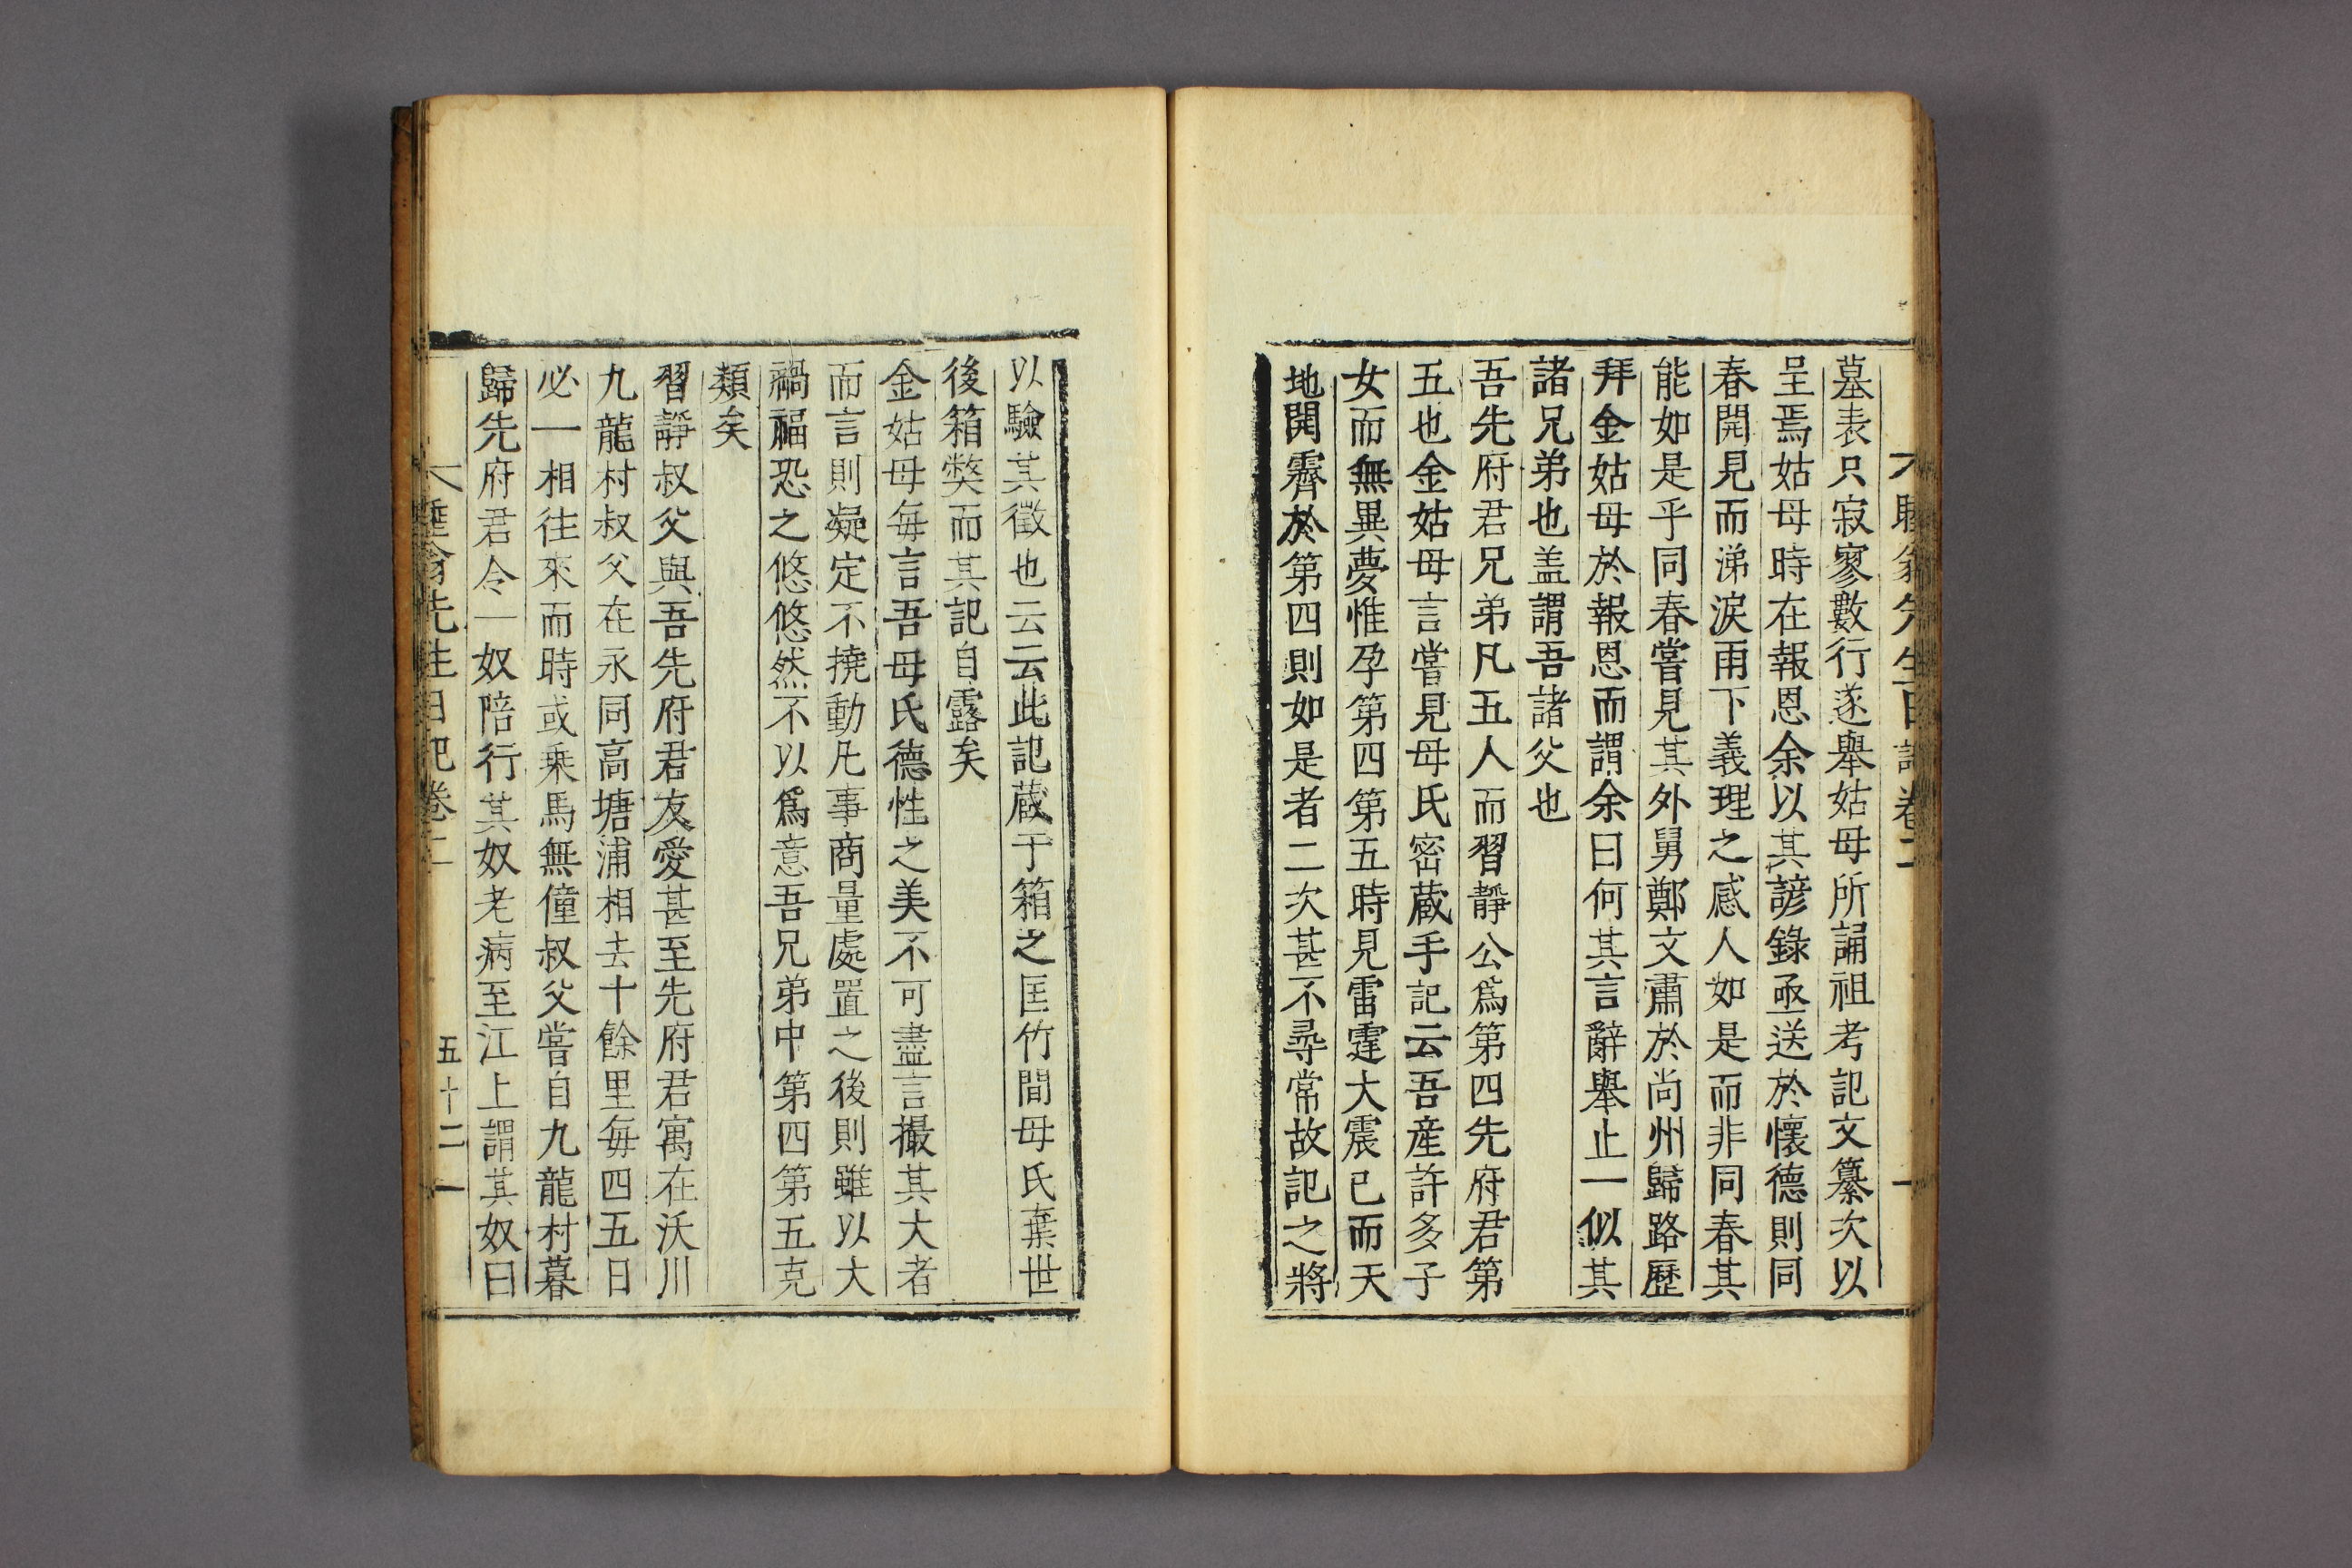 睡翁先生日記卷二
墓表只寂寥數行遂舉姑母所誦祖考記文纂次以
呈焉姑母時在報恩余以其諺錄亟送於懷德則同
春開見而涕淚雨下義理之感人如是而非同春其
能如是乎同春嘗見其外舅鄭文肅於尚州歸路歷
拜金姑母於報恩而謂余曰何其言辭舉止一似其
諸兄弟也盖謂吾諸父也
吾先府君兄弟凡五人而習靜公爲第四先府君第
五也金姑母言嘗見母氏密蔵手記云吾産許多子
女而無異夢惟孕第四第五時見雷霆大震已而天
地開霽於第四則如是者二次甚不尋常故記之將
以驗其徵也云云此記蔵于箱之匡竹間母氏棄世
後箱獘而其記自露矣
金姑母每言吾母氏德性之美不可盡言撮其大者
而言則凝定不撓動凡事商量處置之後則雖以大
禍福恐之悠悠然不以爲意吾兄弟中第四第五克
類矣
習靜叔父與吾先府君友愛甚至先府君寓在沃川
九龍村叔父在永同高塘浦相去十餘里每四五日
必一相徃來而時或乗馬無僮叔父嘗自九龍村暮
歸先府君令一奴陪行其奴老病至江上謂其奴曰
睡翁先生日記卷二 五十二